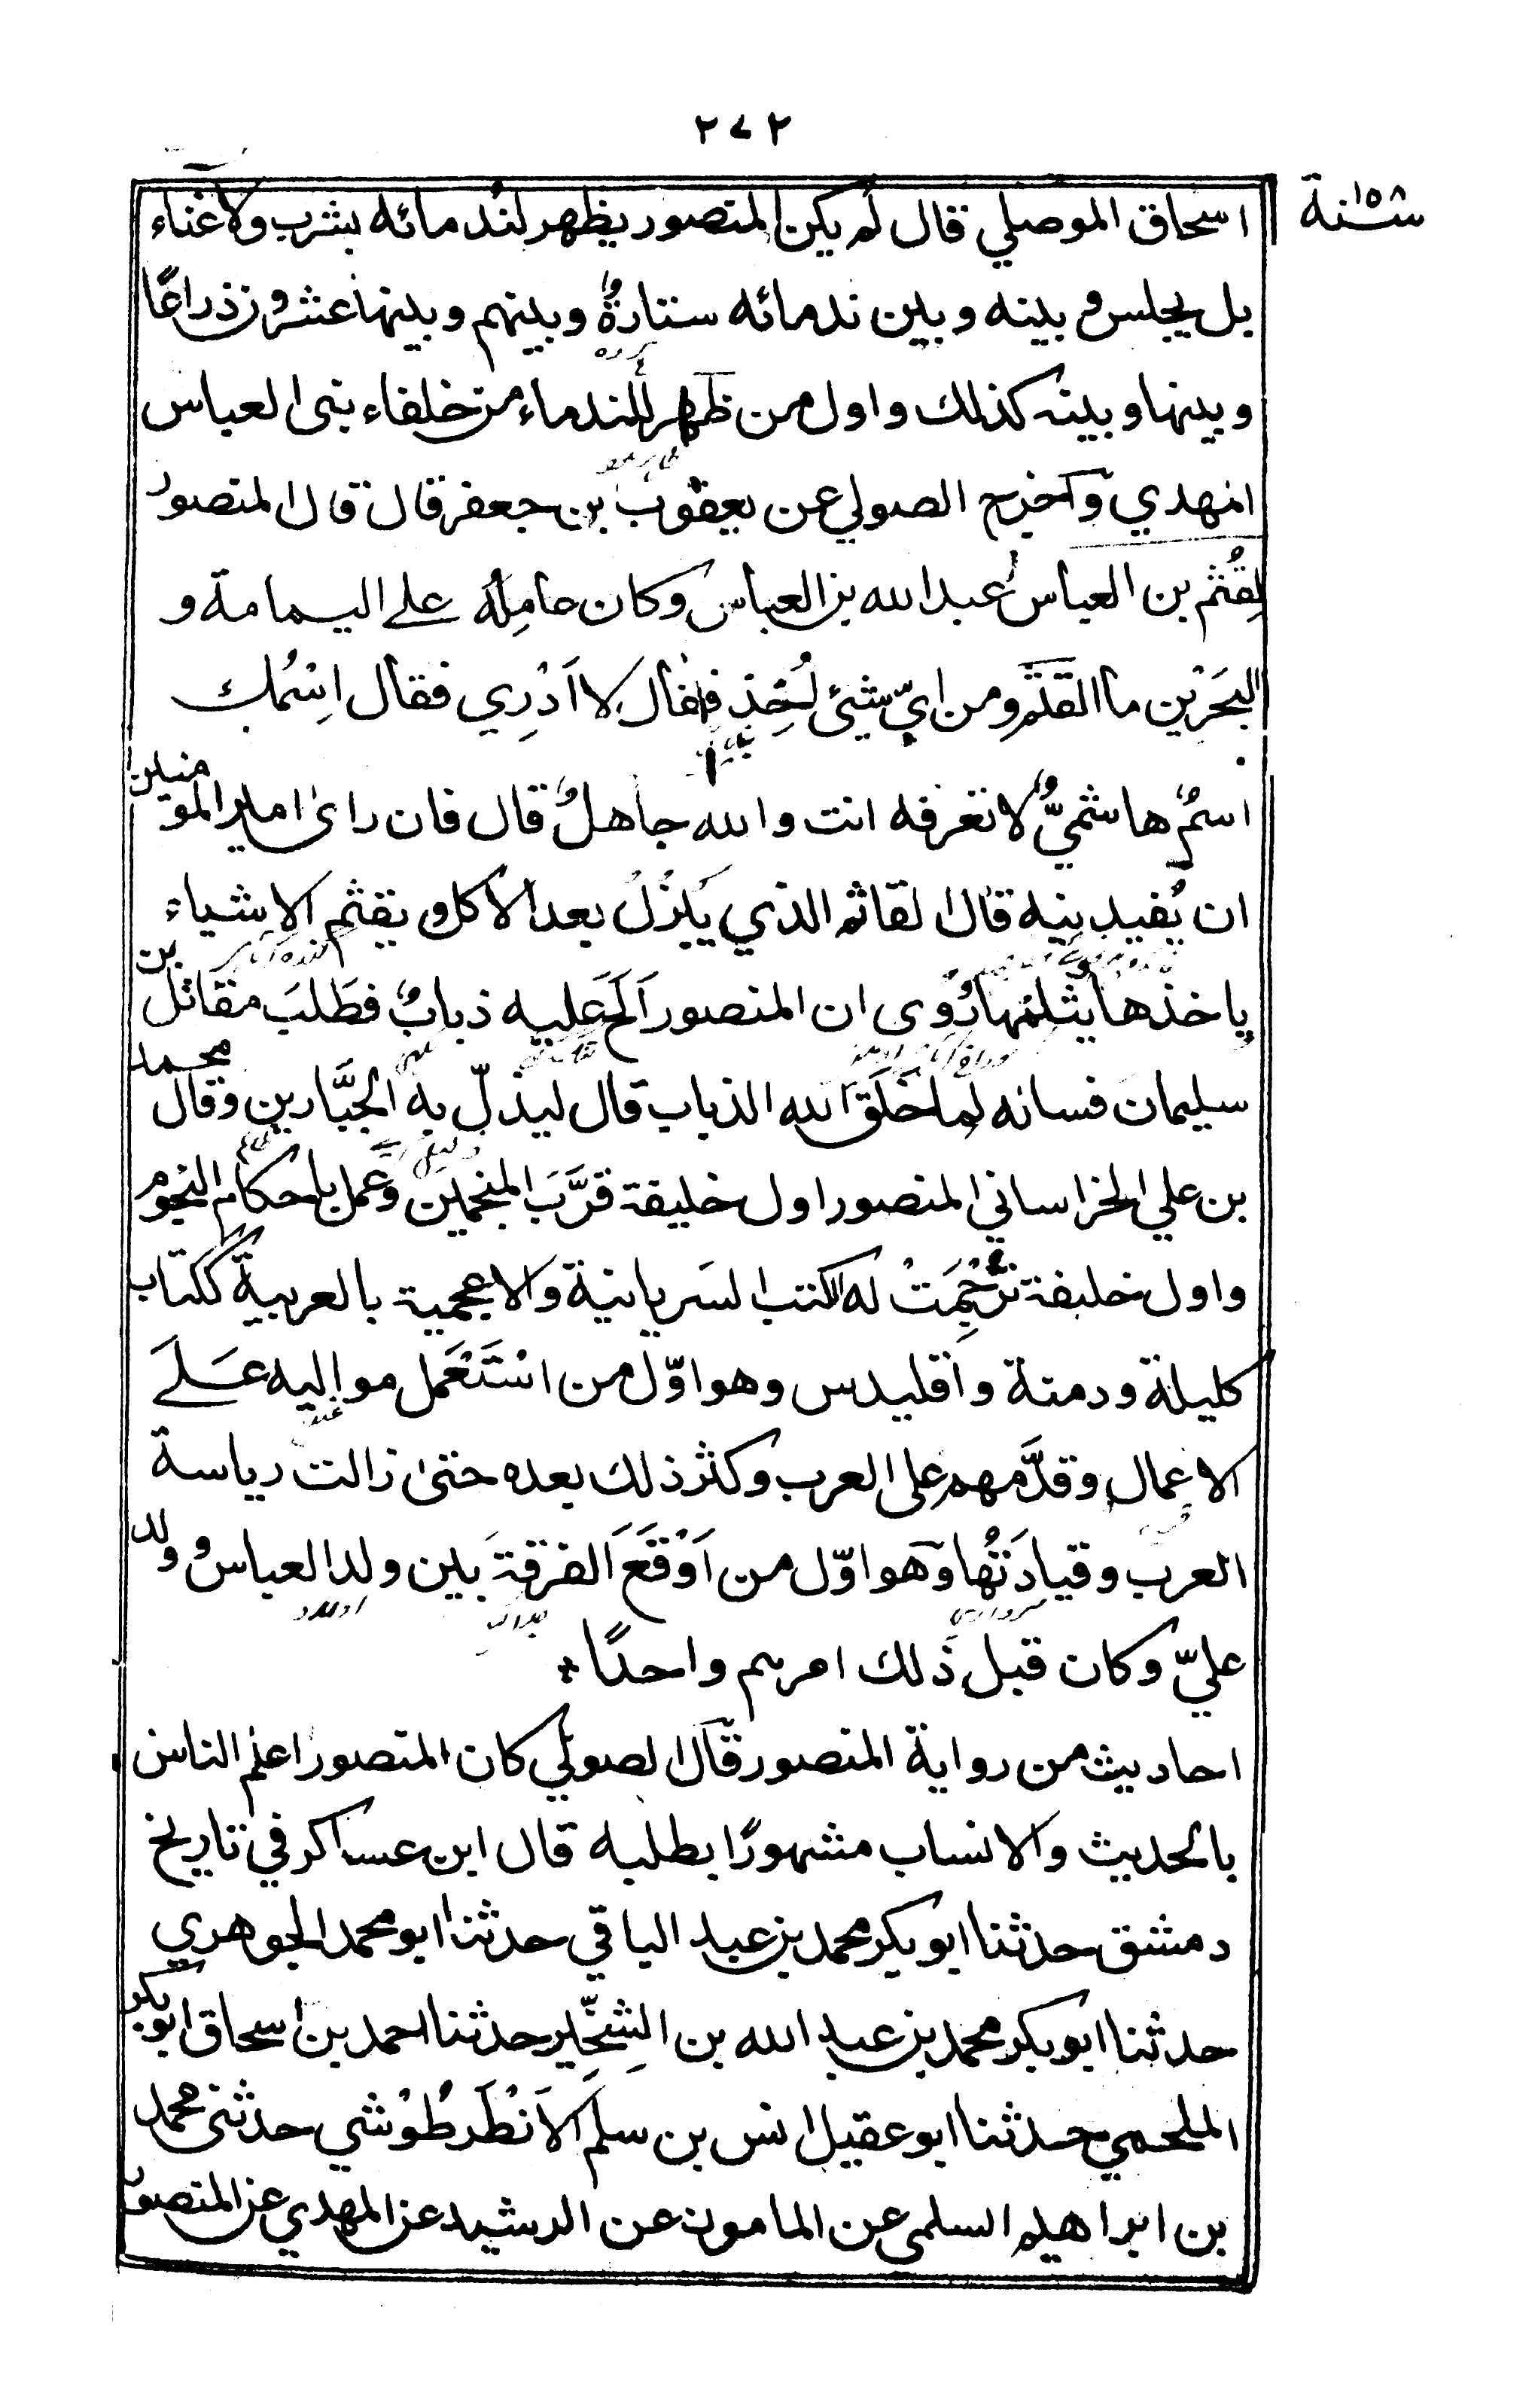 ٢٧٢
سنة ١٥٨
اسحاق الموصلي قال لم يكن المنصور يظهر لندمائه بشرب ولا غناء
بل يجلس و بينه و بين ندمائه ستارةٌ و بينهم و بينها عشرون ذراعًا
و بينها و بينه كذلك و اول من ظهر للندماء من خلفاء بنى العباس
المهدي وآخرج الصولي عن يعقوب بن جعفر قال قال المنصور
لِقُثَم بن العباس بن عبد الله بن العباس وكان عامِلَه على اليمامة و
البَحَرْين ما القَثَم و من ايّ شيئ اُخِذ فقال لا اَدْرِي فقال اِسْمُك
اسمٌ هاشميٌّ لا تعرفه انت و الله جاهلٌ قال فان راى امير المومنين
ان يُفيدنِيه قال القاثم الذي يَنزُل بعد الاكل و يقثم الاشياء
ياخذها و يثلمها رُوى ان المنصور اَلَحَّ عَليه ذبابٌ فطَلبَ مقاتل بن
سليمان فساله لِما خَلَق الله الذباب قال ليذلّ به الجبَّارين و قال محمد
بن علي الخراساني المنصور اول خليفة قرَّبَ المنجمين و عمل باحكام النجوم
و اول خليفة تُرْجِمَتْ له الكتب السَريانية و الاعجمية بالعربية ككتاب
كليلة و دمنة و اقليدس و هو اوّل من اسْتَعْمَل مواليه عَلَے
الاعمال و قدَّمهم على العرب و كثر ذلك بعده حتى زالت رياسة
العرب و قيادَتُها وهو اوّل من اَوْقَعَ الفرقة بَين ولد العباس و ولد
عليّ و كان قبل ذلك امرهم واحدًا *
احاديث من رواية المنصور قال الصولي كان المنصور اعلم الناس
بالحديث والانساب مشهورًا بطلبه قال ابن عساكر في تاريخ
دمشق حدثنا ابو بكر محمد بن عبد الباقي حدثنا ابو محمد الجوهري
حدثنا ابو بكر محمد بن عبد الله بن الشِخِّير حدثنا احمد بن اسحاق ابو بكر
الملحمي حدثنا ابو عقيل انس بن سلم الاَنْطَرطُوْشي حدثنى محمد
بن ابراهيم السلمى عن المامون عن الرشيد عن المهدي عن المنصور